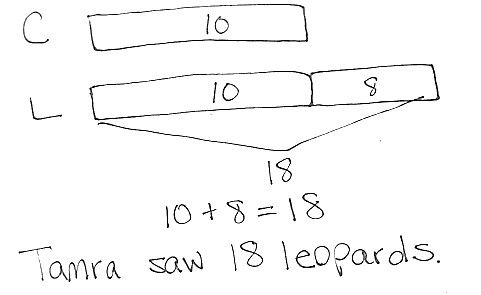 C 10
L 10 8
18
10 + 8 = 18
Tamra saw 18 leopards.